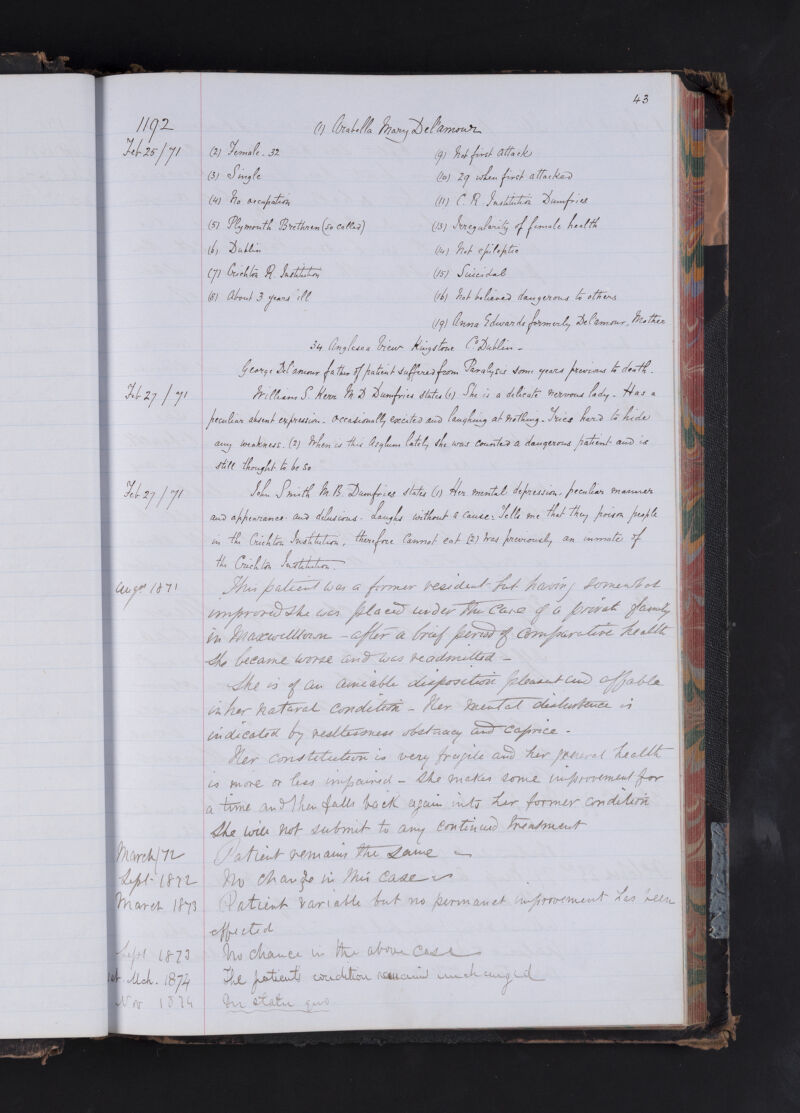 43
1192
(1) Arabella Mary Del'amour
Feb 25/71
(2) Female. 32
(9) Not first attack
(3) Single
(10) 29 when first attacked
(4) No occupation
(11) C. R. Institution Dumfries
(5) Plymouth Brethren (so called)
(13) Irregularity of female health
(6) Dublin
(14) Not epileptic
(7) Crichton R. Institution
(15) Suicidal
(8) About 3 years ill
(16) Not believed dangerous to others
(19) Anna Edwards formerly Del'amour, Mother
34 Anglesea View Kingstone Co Dublin -
George Del'amour father of patient suffered from Paralysis some years previous to death.
Feb 27/71 William S. Kerr M D Dumfries states (1) She is a delicate nervous lady. Has a
peculiar absent expression. occasionally excited and laughing at nothing. Tries hard to hide
any weakness. (2) When in this Asylum lately she was counted a dangerous patient and is
still thought to be so
Feb 27/71 John Smith M. B. Dumfries states (1) Her mental depression, peculiar manner
and appearance and delusions. Laughs without a cause. Tells me that they poison people
in the Crichton Institution, therefore cannot eat (2) Was previously an inmate of
the Crichton Institution.
Augst 1871 This patient was a former resident but having somewhat
improved she was placed under the care of a private family
in Maxwelltown - after a brief period of comparative health
she became worse and was readmitted -
She is of an amiable disposition pleasant and affable
in her natural condition - Her mental disturbance is
indicated by restlessness obstinacy and caprice -
Her constitution is very fragile and her general health
is more or less impaired - She makes some improvement for
a time and then falls back again into her former condition
She will not submit to any continued treatment
March/72 Patient remains the same
Sept 1872 No change in this case
March 1873 Patient variable but no permanet improvement has been
effected
Sept 1873 No chance in the above case
Mch. 1874 The patients condition remains unchanged
Nov 1874 In statu quo